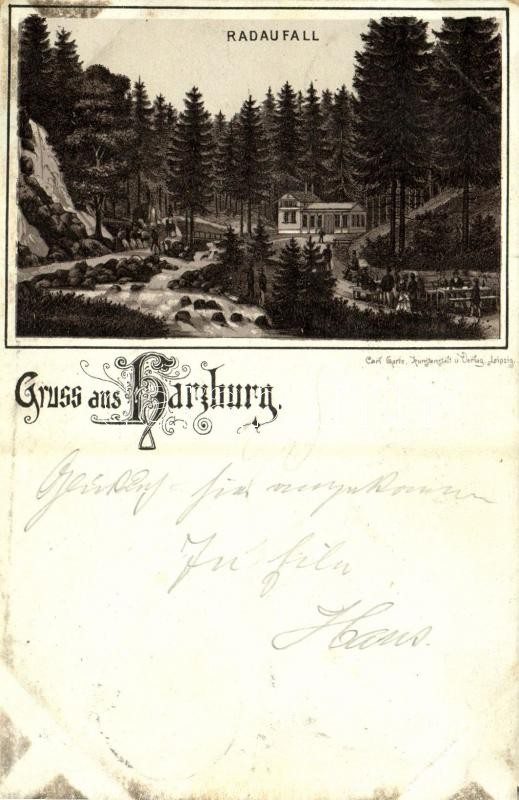 RADAUFALL
Carl Garte, Kunstanstalt u. Verlag, Leipzig.
Gruss aus Harzburg.
Glücklich hier angekommen
In Eile
Hans.